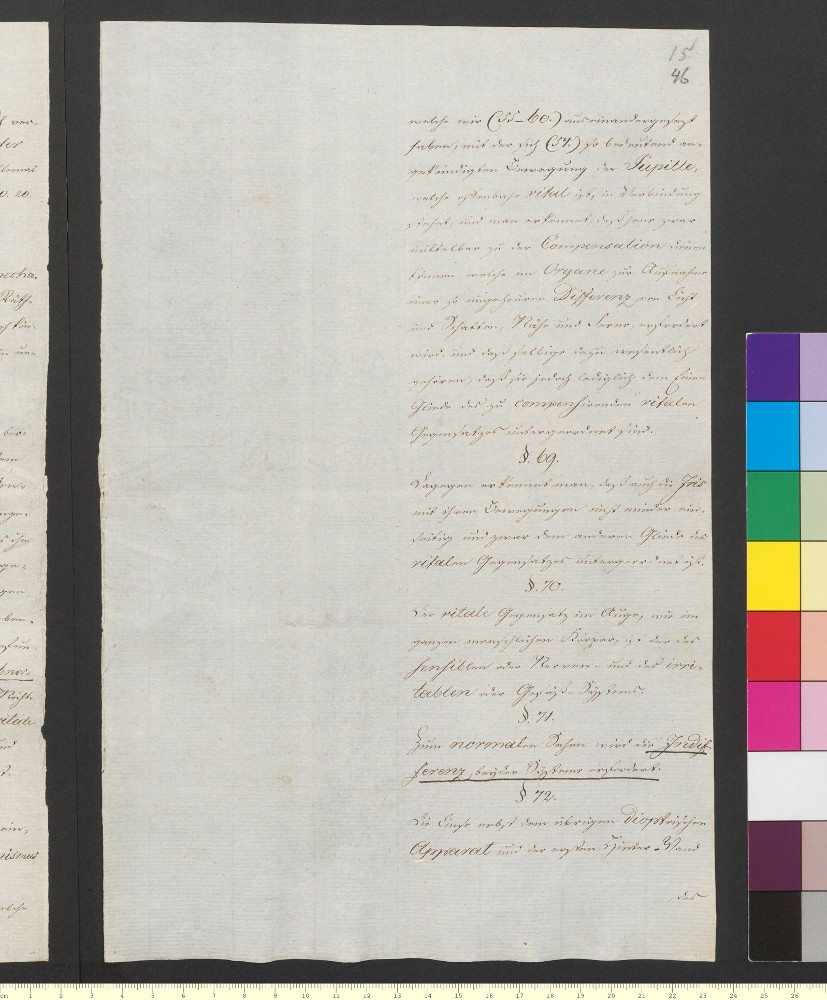 15
46
welche wir (55–60.) auseinandergesezt
haben, mit der sich (54.) so bedeutend an-
gekündigten Bewegung der Pupille,
welche offenbahr vital ist, in Verbindung
stehet, und man erkennet, daß jene zwar
mittelbar zu der Compensation dienen
können, welche im Organe zur Aufnahme
einer so ungeheuren Differenz von Licht
und Schatten, Nähe und Ferne, erfordert
wird, und daß selbige dazu wesentlich
gehören, daß sie jedoch lediglich dem Einen
Gliede des zu compensirenden vitalen
Gegensatzes untergeordnet sind.
§. 69.
Dagegen erkennet man, daß auch die Iris
mit ihren Bewegungen nicht minder ein-
seitig und zwar dem anderen Gliede des
vitalen Gegensatzes untergeordnet ist.
§. 70.
Der vitale Gegensatz im Auge, wie im
ganzen menschlichen Körper, ist der des
sensiblen oder Nerven- und des irri-
tablen oder Gefäß-Systems.
§. 71.
Zum normalen Sehen wird die Indif-
ferenz beyder Systeme erfordert.
§. 72.
Die Linse nebst dem übrigen dioptrischen
Apparat und der ersten Hinter-Wand
des